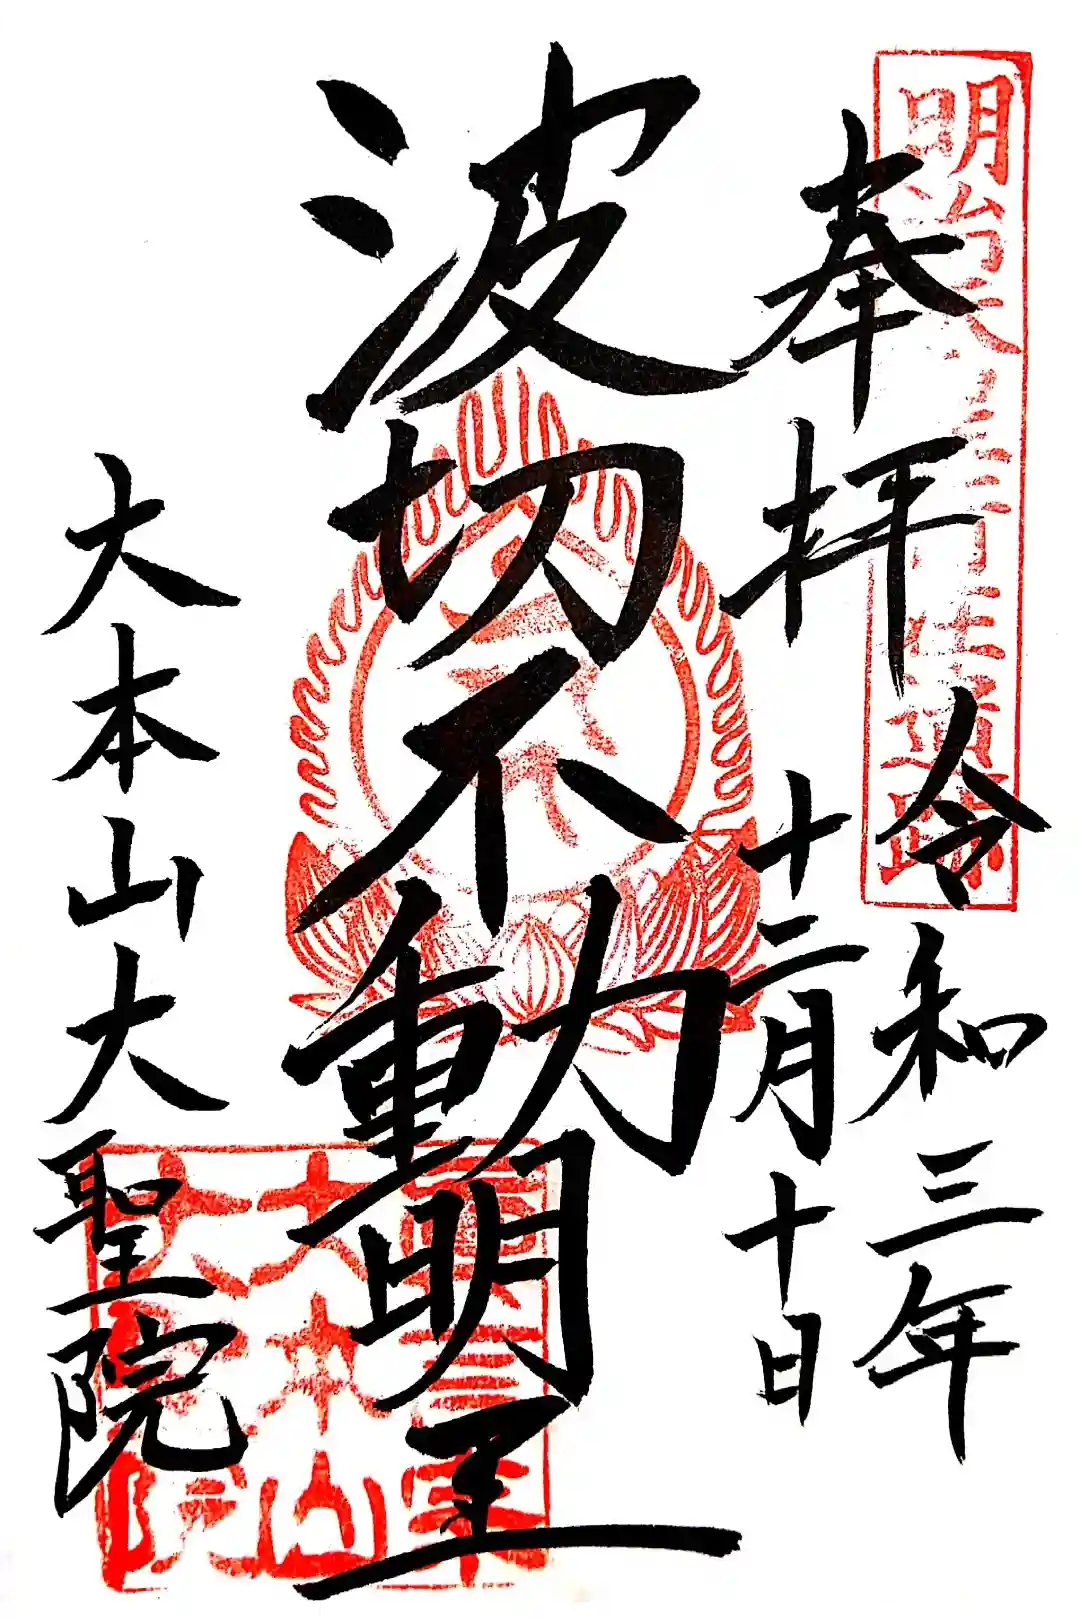 奉拝
令和三年
十二月十日
波切不動明王
大本山大聖院
明治天皇行在遺跡
大本山
大聖院